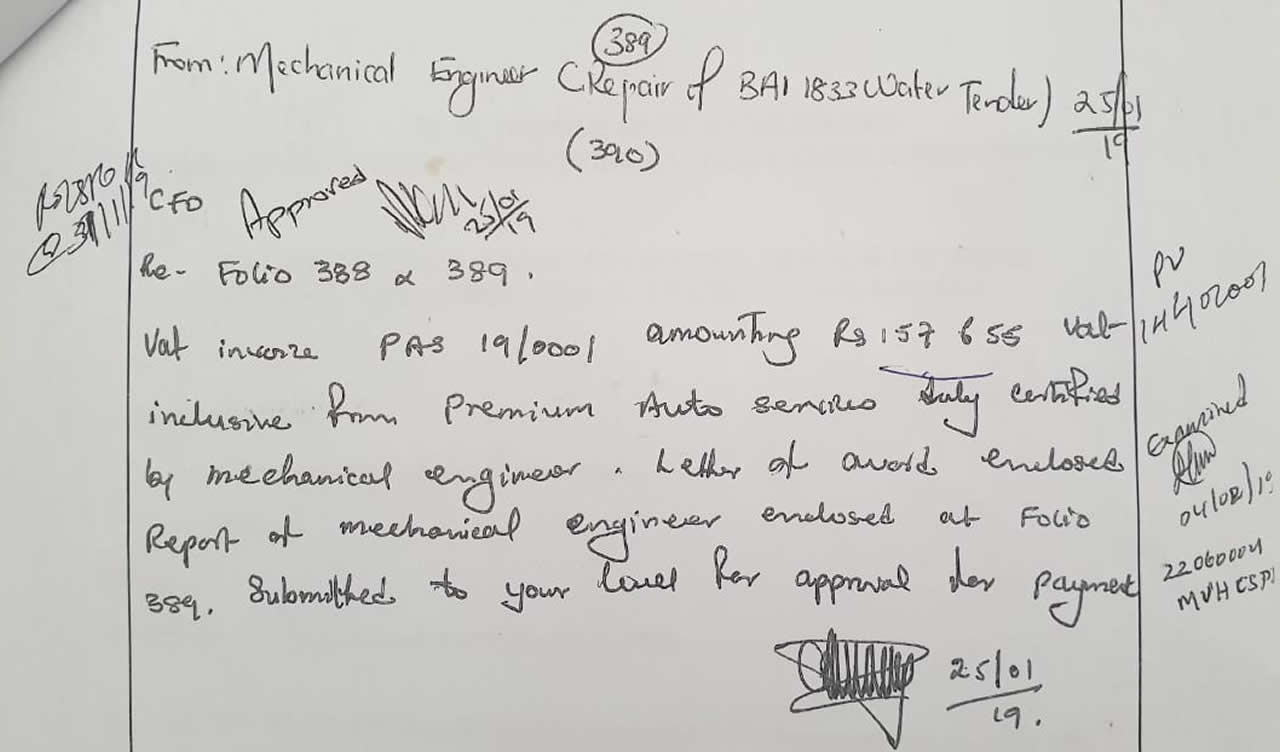 389
From: Mechanical Engineer (Repair of BAI 1833 Water Tender) 25/01/19
(390)
CFO Approved 25/01/19
Re- Folio 388 & 389.
Vat invoice PAS 19/0001 amounting Rs 157 655 Vat
inclusive from Premium Auto services duly certified
by mechanical engineer. Letter of award enclosed
Report of mechanical engineer enclosed at Folio
389. Submitted to your level for approval for payment
25/01/19.
PV
14402007
Examined
04/02/19
22060004
MVH CSPI